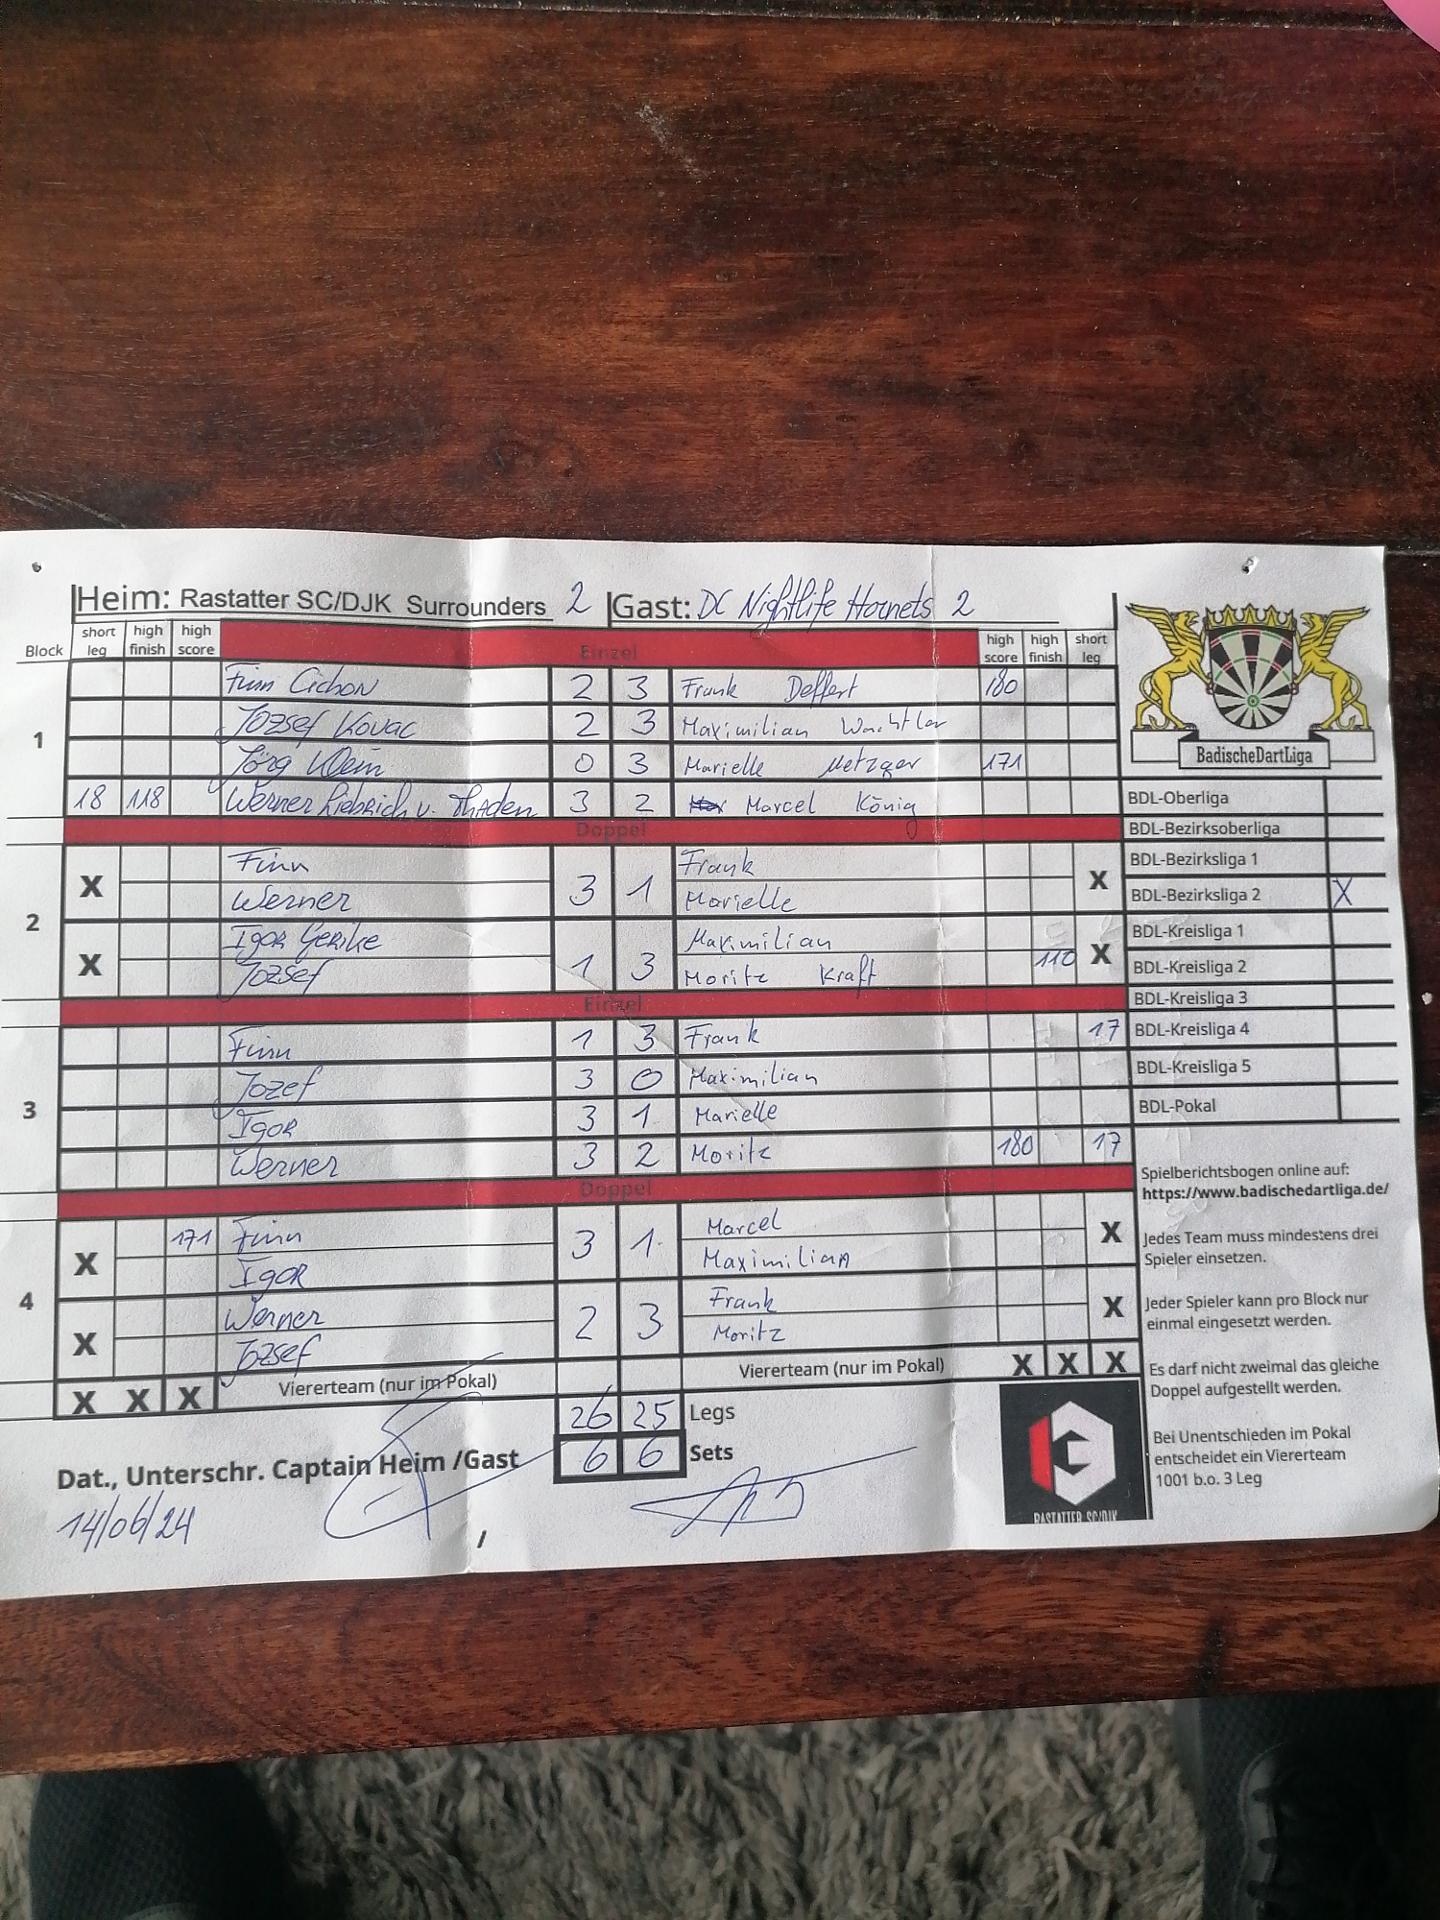 Heim: Rastatter SC/DJK Surrounders 2 Gast: DC Nightlife Hornets 2
Block short leg high finish high score Einzel high score high finish short leg
1
Finn Cichon 2 3 Frank Deffert 180
Jozsef Kovac 2 3 Maximilian Wachtler
Jörg Klein 0 3 Marielle Metzger 171
18 118 Werner Liebrich v. Thaden 3 2 Marcel König
Doppel
2
X Finn 3 1 Frank X
Werner Marielle
X Igor Gerike 1 3 Maximilian 110 X
Jozsef Moritz Kraft
Einzel
3
Finn 1 3 Frank 17
Jozef 3 0 Maximilian
Igor 3 1 Marielle
Werner 3 2 Moritz 180 17
Doppel
4
X 171 Finn 3 1 Marcel X
Igor Maximilian
X Werner 2 3 Frank X
Jozsef Moritz
X X X Vierерteam (nur im Pokal) Viererteam (nur im Pokal) X X X
26 25 Legs
6 6 Sets
Dat., Unterschr. Captain Heim /Gast
14/06/24 /
BadischeDartLiga
BDL-Oberliga
BDL-Bezirksoberliga
BDL-Bezirksliga 1
BDL-Bezirksliga 2 X
BDL-Kreisliga 1
BDL-Kreisliga 2
BDL-Kreisliga 3
BDL-Kreisliga 4
BDL-Kreisliga 5
BDL-Pokal
Spielberichtsbogen online auf:
https://www.badischedartliga.de/
Jedes Team muss mindestens drei
Spieler einsetzen.
Jeder Spieler kann pro Block nur
einmal eingesetzt werden.
Es darf nicht zweimal das gleiche
Doppel aufgestellt werden.
Bei Unentschieden im Pokal
entscheidet ein Viererteam
1001 b.o. 3 Leg
RASTATTER SC/DJK